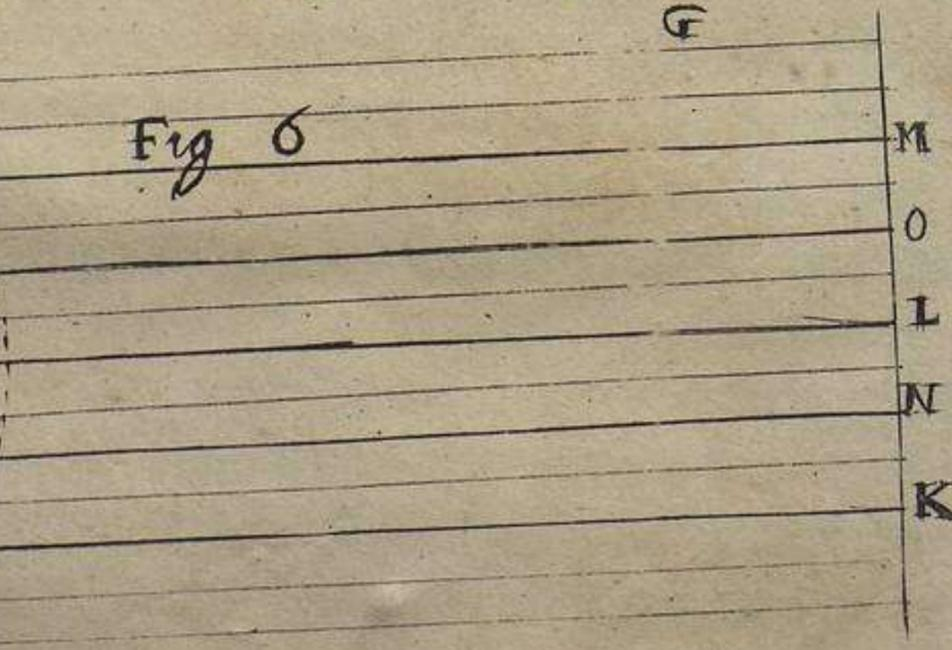 G
Fig 6
M
O
L
N
K